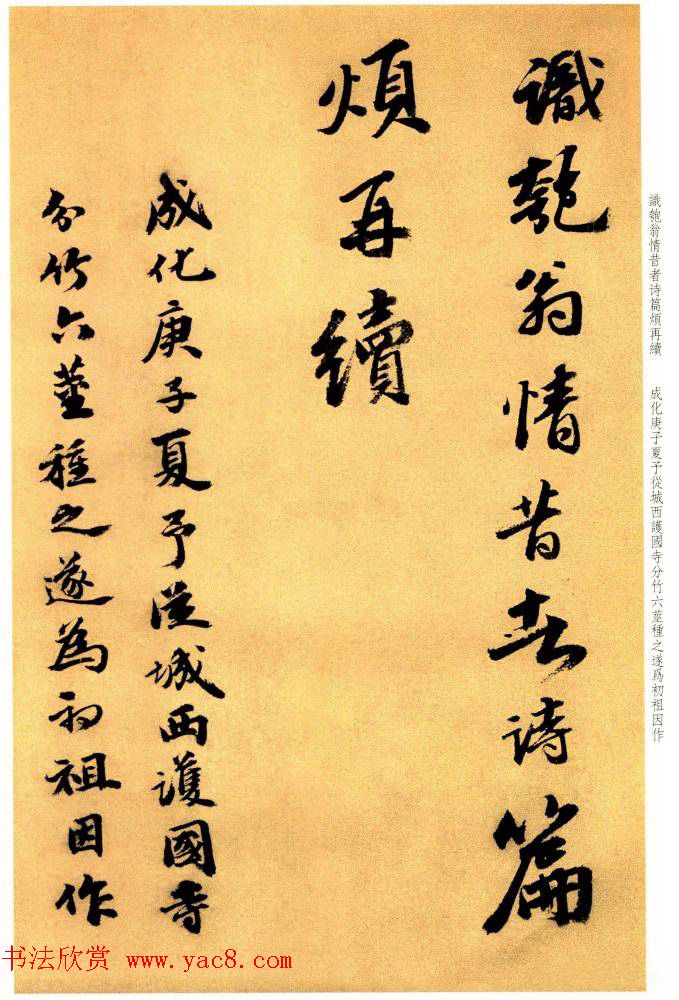 識匏翁情昔者诗篇
煩再續
成化庚子夏予從城西護國寺
分竹六莖種之遂為初祖因作
識匏翁情昔者诗篇煩再續　成化庚子夏予從城西護國寺分竹六莖種之遂爲初祖因作
书法欣赏 www.yac8.com